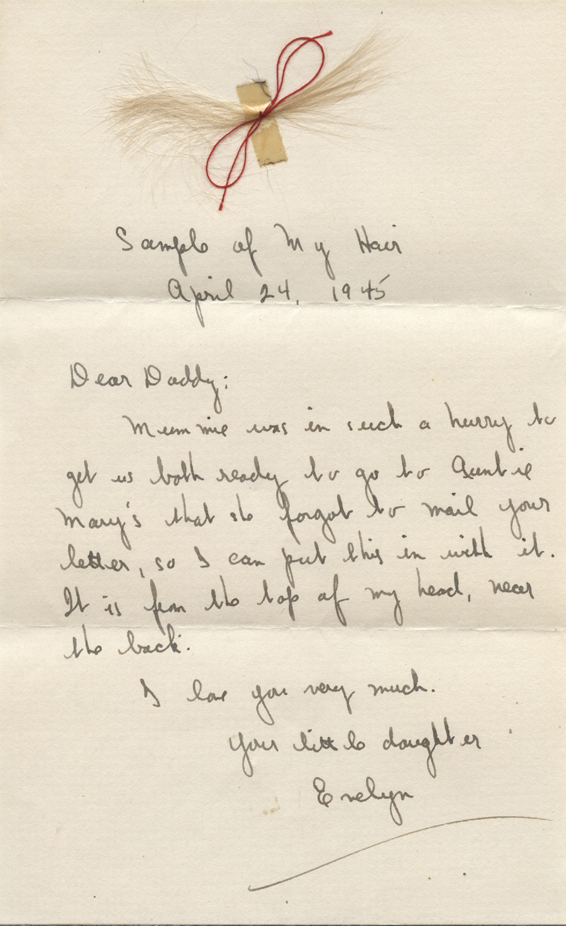 Sample of My Hair
April 24, 1945
Dear Daddy:
Mummie was in such a hurry to
get us both ready to go to Auntie
Mary's that she forgot to mail your
letter, so I can put this in with it.
It is from the top of my head, near
the back.
I love you very much.
Your little daughter
Evelyn